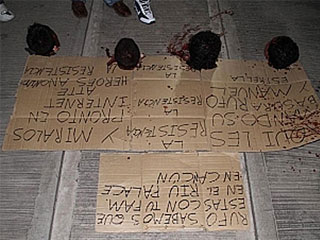 QUI LES
ANDO SU
BASURA RUFO
Y MANUEL
ESTRELLA
LA
RESISTENCIA
LA
RESISTENCIA
LA
RESISTENCIA
Y MIRALOS
PRONTO EN
INTERNET
ATTE
HEROES ANONIMO
RESISTENCIA
RUFO SABEMOS QUE
ESTAS CON TU FAM.
EN EL RIU PALACE
EN CANCUN